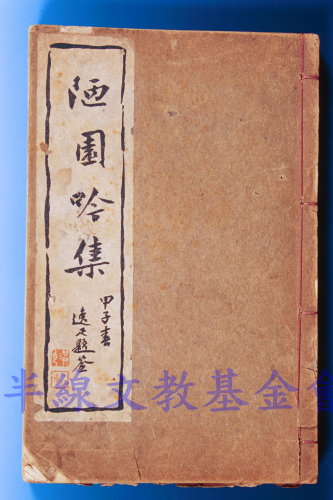 陋園吟集
甲子春
逸七題簽
半線文教基金會